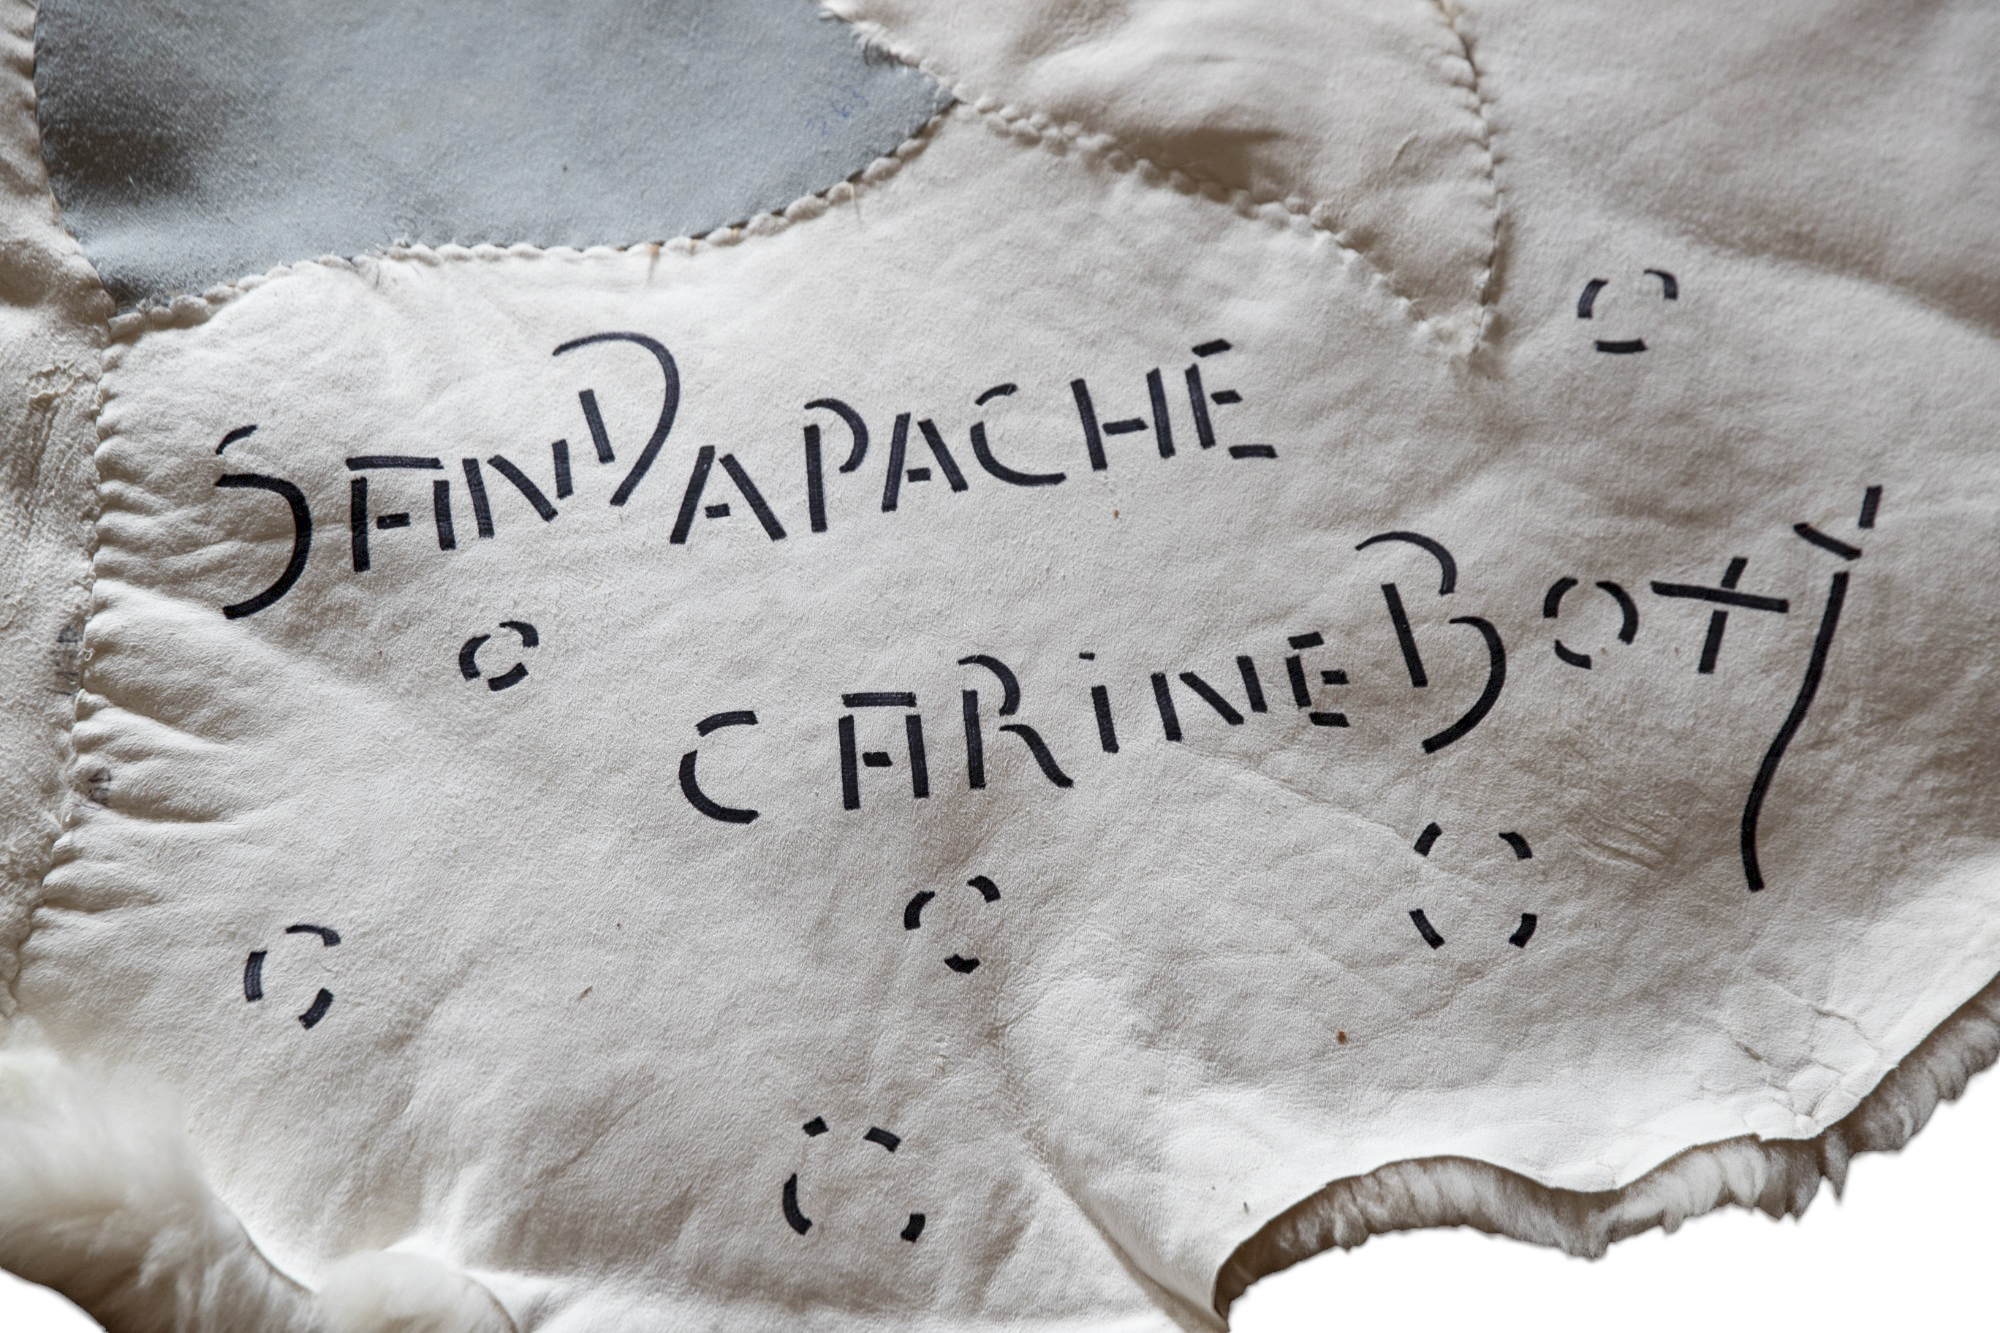 SANDAPACHE
CARiNEBOTY